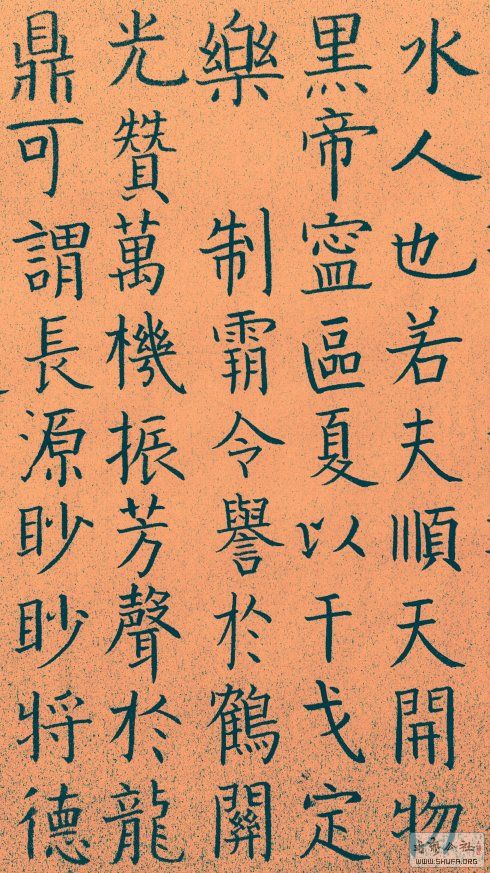 水人也若夫順天開物
黑帝寍區夏以干戈定
樂 制霸令譽於鶴關
光贊萬機振芳聲於龍
鼎可謂長源眇眇将德
WWW.SHUFA.ORG